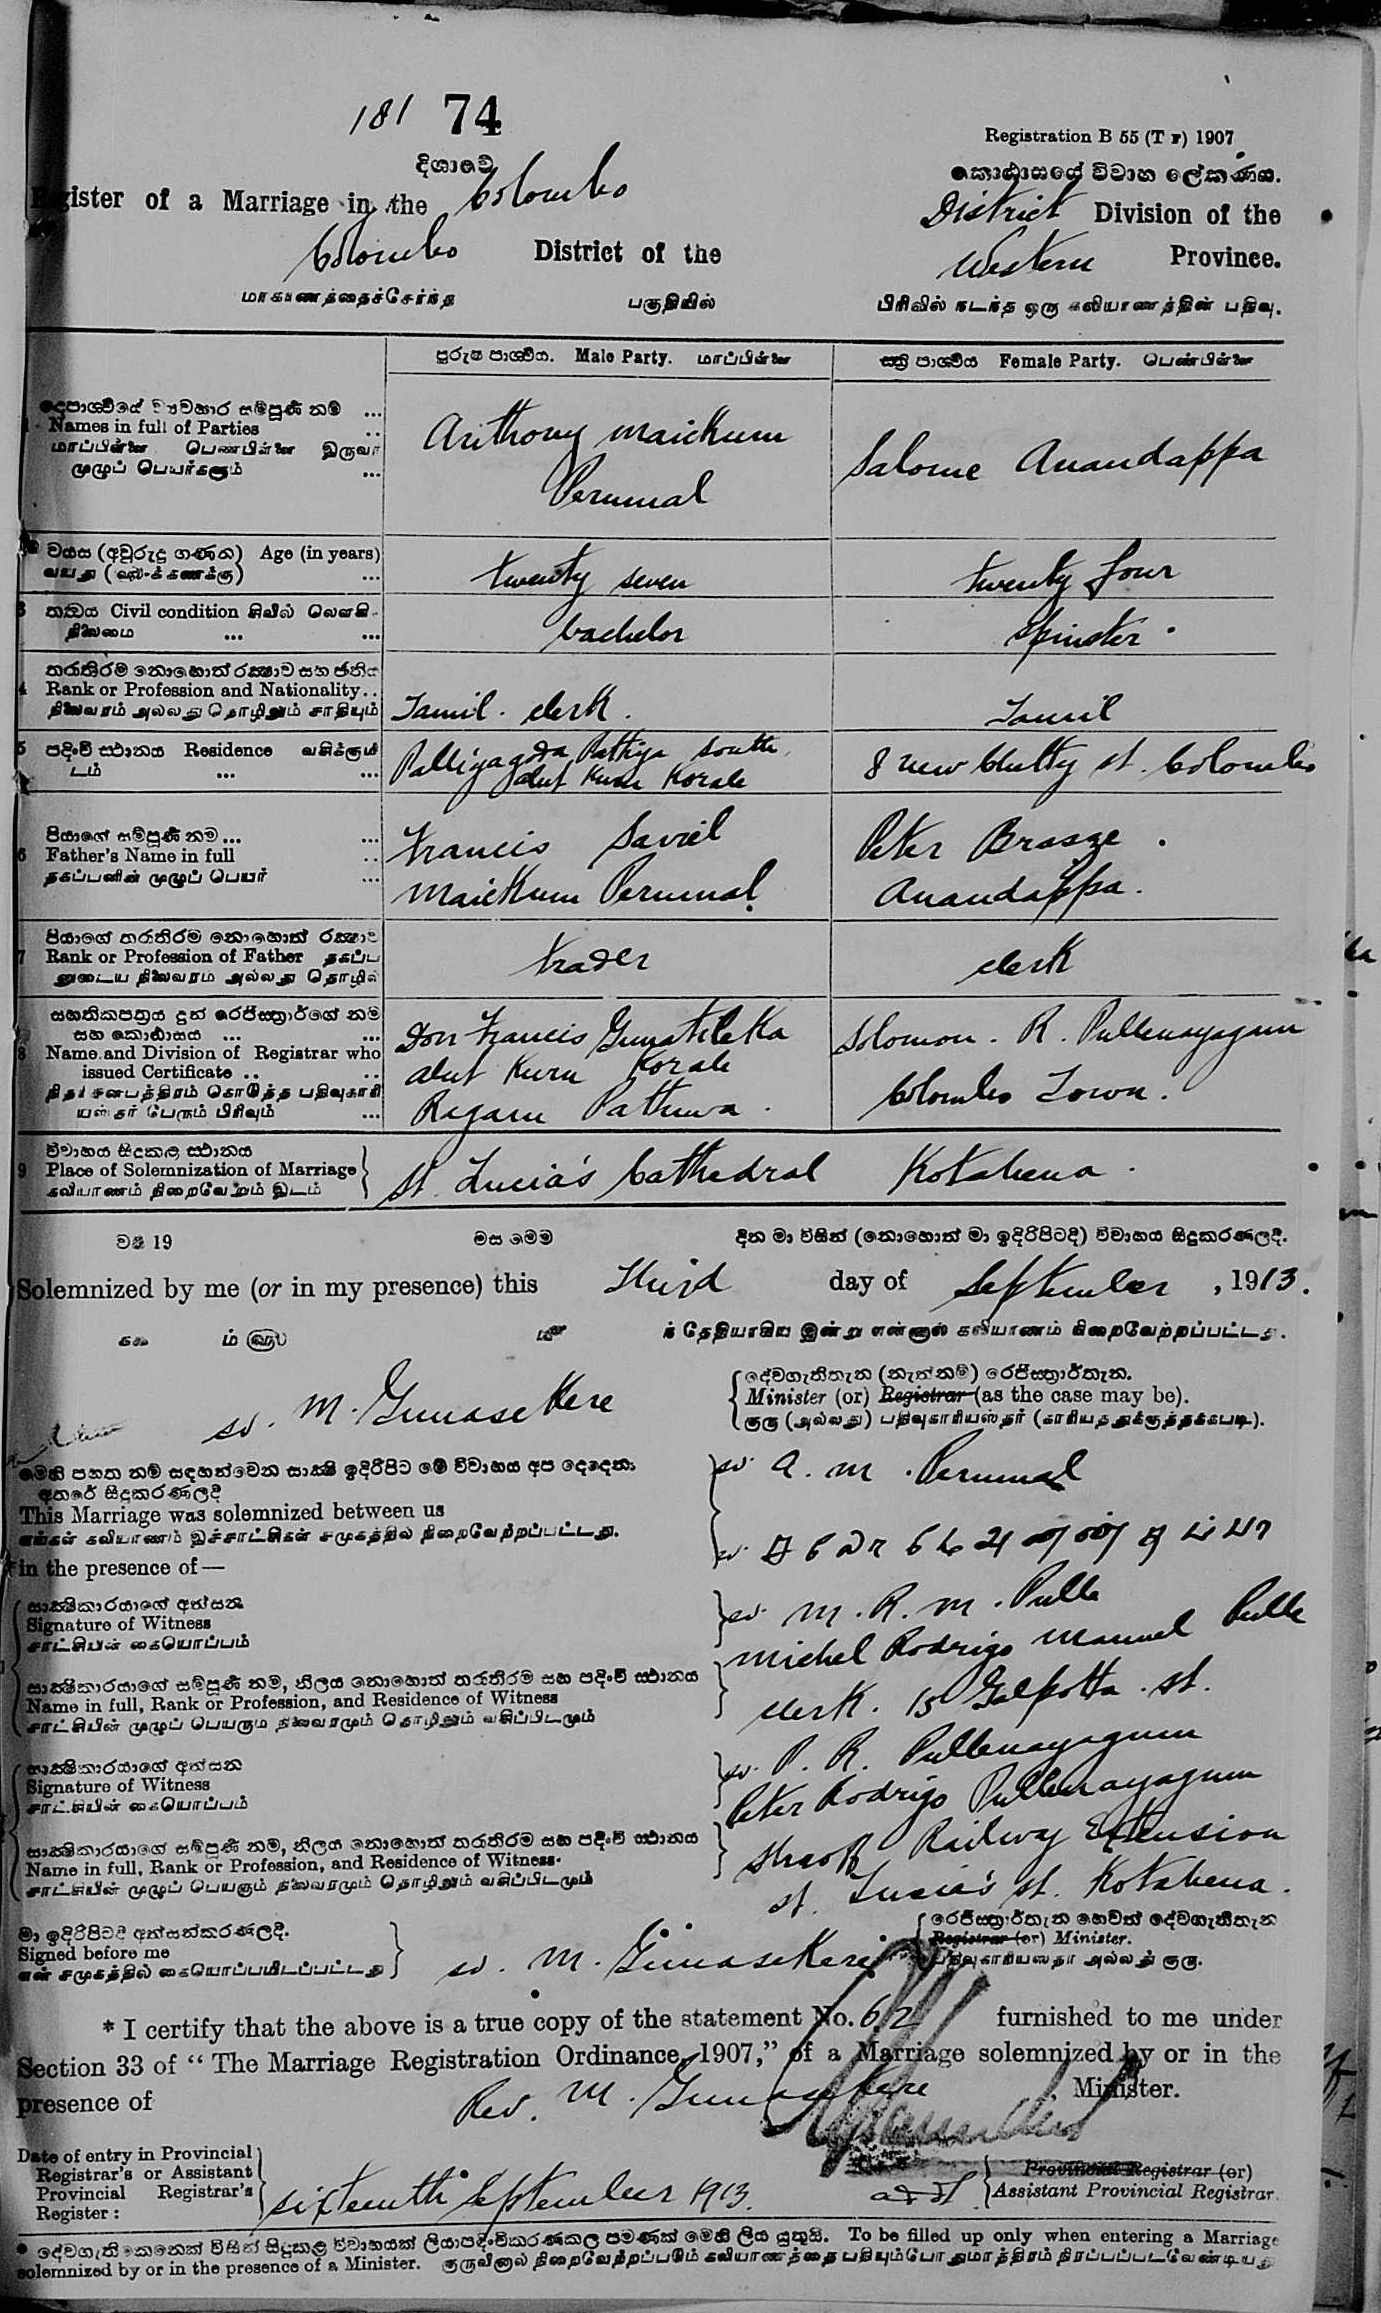 181 74
Registration B 55 (T F) 1907
දිශාවේ
කොඨාසයේ විවාහ ලේකණය.
Register of a Marriage in the Colombo District Division of the
Colombo District of the Western Province.
மாகாணத்தைச்சேர்ந்த பகுதியில் பிரிவில் நடந்த ஒரு கலியாணத்தின் பதிவு.
පුරුෂ පාශ්වීය. Male Party. மாப்பிள்ளை
ස්ත්‍රි පාශ්වීය Female Party. பெண்பிள்ளை
දෙපාශ්වීයේ ව්‍යවහාර සම්පූර්ණ නම ...
1 Names in full of Parties ..
மாப்பிள்ளை பெண்பிள்ளை இருவர்
முழுப் பெயர்களும் ...
Anthony Maickum
Perumal
Salome Anandappa
වයස (අවුරුදු ගණන) Age (in years)
வயது (வருடக்கணக்கு) ...
twenty seven
twenty four
3 තත්වය Civil condition சிவில் லௌகி
நிலைமை ... ...
bachelor
Spinster.
තරාතිරම නොහොත් රක්ෂාව සහ ජාතිය
4 Rank or Profession and Nationality..
நிலைவரம் அல்லது தொழிலும் சாதியும்
Tamil. clerk.
Tamil
5 පදිංචි ස්ථානය Residence வசிக்குமி
டம் ... ...
Palliyagoda Pattiya South
Alut Kuru Korale
8 New Chetty st. Colombo
පියාගේ සම්පූර්ණ නම ... ...
6 Father's Name in full ..
தகப்பனின் முழுப் பெயர் ...
Francis Saviel
Maickum Perumal.
Peter Brasze.
Anandappa.
පියාගේ තරාතිරම නොහොත් රක්ෂාව
7 Rank or Profession of Father தகப்ப
னுடைய நிலைவரம் அல்லது தொழில்
trader
clerk
සහතිකපත්‍රය දුන් රෙජිස්ත්‍රාර්ගේ නම
සහ කොඨාසය ... ...
8 Name and Division of Registrar who
issued Certificate .. ..
கொடுத்த பதிவுகாரி
பேரும் பிரிவும் ...
Don Francis Gunatileka
Alut Kuru Korale
Ragam Pattuwa.
Solomon. R. Pullenayagum
Colombo Town.
විවාහය සිදුකළ ස්ථානය
9 Place of Solemnization of Marriage
கலியாணம் நிறைவேறும் இடம்
St. Lucia's Cathedral Kotahena.
වර්ෂ 19 මස මෙම දින මා විසින් (නොහොත් මා ඉදිරිපිටදී) විවාහය සිදුකරණලදී.
Solemnized by me (or in my presence) this Third day of September, 1913.
ந் தேதியாகிய இன்று என்னால் கலியாணம் நிறைவேற்றப்பட்டது.
දේවගැතිතැන (නැත්නම්) රෙජිස්ත්‍රාර්තැන.
sd. M. Gunasekere
Minister (or) Registrar (as the case may be).
குரு (அல்லது) பதிவுகாரியஸ்தர் (காரியத்துக்குத்தக்கபடி).
මෙහි පහත නම් සඳහන්වෙන සාක්ෂි ඉදිරිපිට මේ විවාහය අප දෙදෙනා
අතරේ සිදුකරණලදී
This Marriage was solemnized between us
எங்கள் கலியாணம் இச்சாட்சிகள் சமுகத்தில் நிறைவேற்றப்பட்டது.
in the presence of—
sd. A. M. Perumal
සාක්ෂිකාරයාගේ අත්සන
Signature of Witness
சாட்சியின் கையொப்பம்
sd. M. R. M. Pulle
සාක්ෂිකාරයාගේ සම්පූර්ණ නම, නිලය නොහොත් තරාතිරම සහ පදිංචි ස්ථානය
Name in full, Rank or Profession, and Residence of Witness
சாட்சியின் முழுப் பெயரும் நிலைவரமும் தொழிலும் வசிப்பிடமும்
Michel Rodrigo Manuel Pulle
clerk. 15 Galpotta. st.
සාක්ෂිකාරයාගේ අත්සන
Signature of Witness
சாட்சியின் கையொப்பம்
sd. P. R. Pullenayagum
සාක්ෂිකාරයාගේ සම්පූර්ණ නම, නිලය නොහොත් තරාතිරම සහ පදිංචි ස්ථානය
Name in full, Rank or Profession, and Residence of Witness.
சாட்சியின் முழுப் பெயரும் நிலைவரமும் தொழிலும் வசிப்பிடமும்
Peter Rodrigo Pullenayagum
Shroff Railway Extension
St. Lucia's st. Kotahena.
මා ඉදිරිපිටදී අත්සන්කරණලදී.
Signed before me
என் சமுகத்தில் கையொப்பமிடப்பட்டது
sd. M. Gunasekere
රෙජිස්ත්‍රාර්තැන හෙවත් දේවගැතිතැන
Registrar (or) Minister.
பதிவுகாரியஸ்தர் அல்லது குரு.
* I certify that the above is a true copy of the statement No. 62 furnished to me under
Section 33 of “The Marriage Registration Ordinance, 1907,” of a Marriage solemnized by or in the
presence of Rev. M. Gunasekere Minister.
Date of entry in Provincial
Registrar's or Assistant
Provincial Registrar's
Register :
sixteenth September 1913.
Provincial Registrar (or)
Assistant Provincial Registrar.
* දේවගැතිකෙනෙක් විසින් සිදුකළ විවාහයක් ලියාපදිංචිකරණකල පමණක් මෙහි ලිය යුතුයි. To be filled up only when entering a Marriage
solemnized by or in the presence of a Minister. குருவினால் நிறைவேற்றப்படும் கலியாணத்தை பதியும்போதுமாத்திரம் நிரப்பப்படவேண்டியது